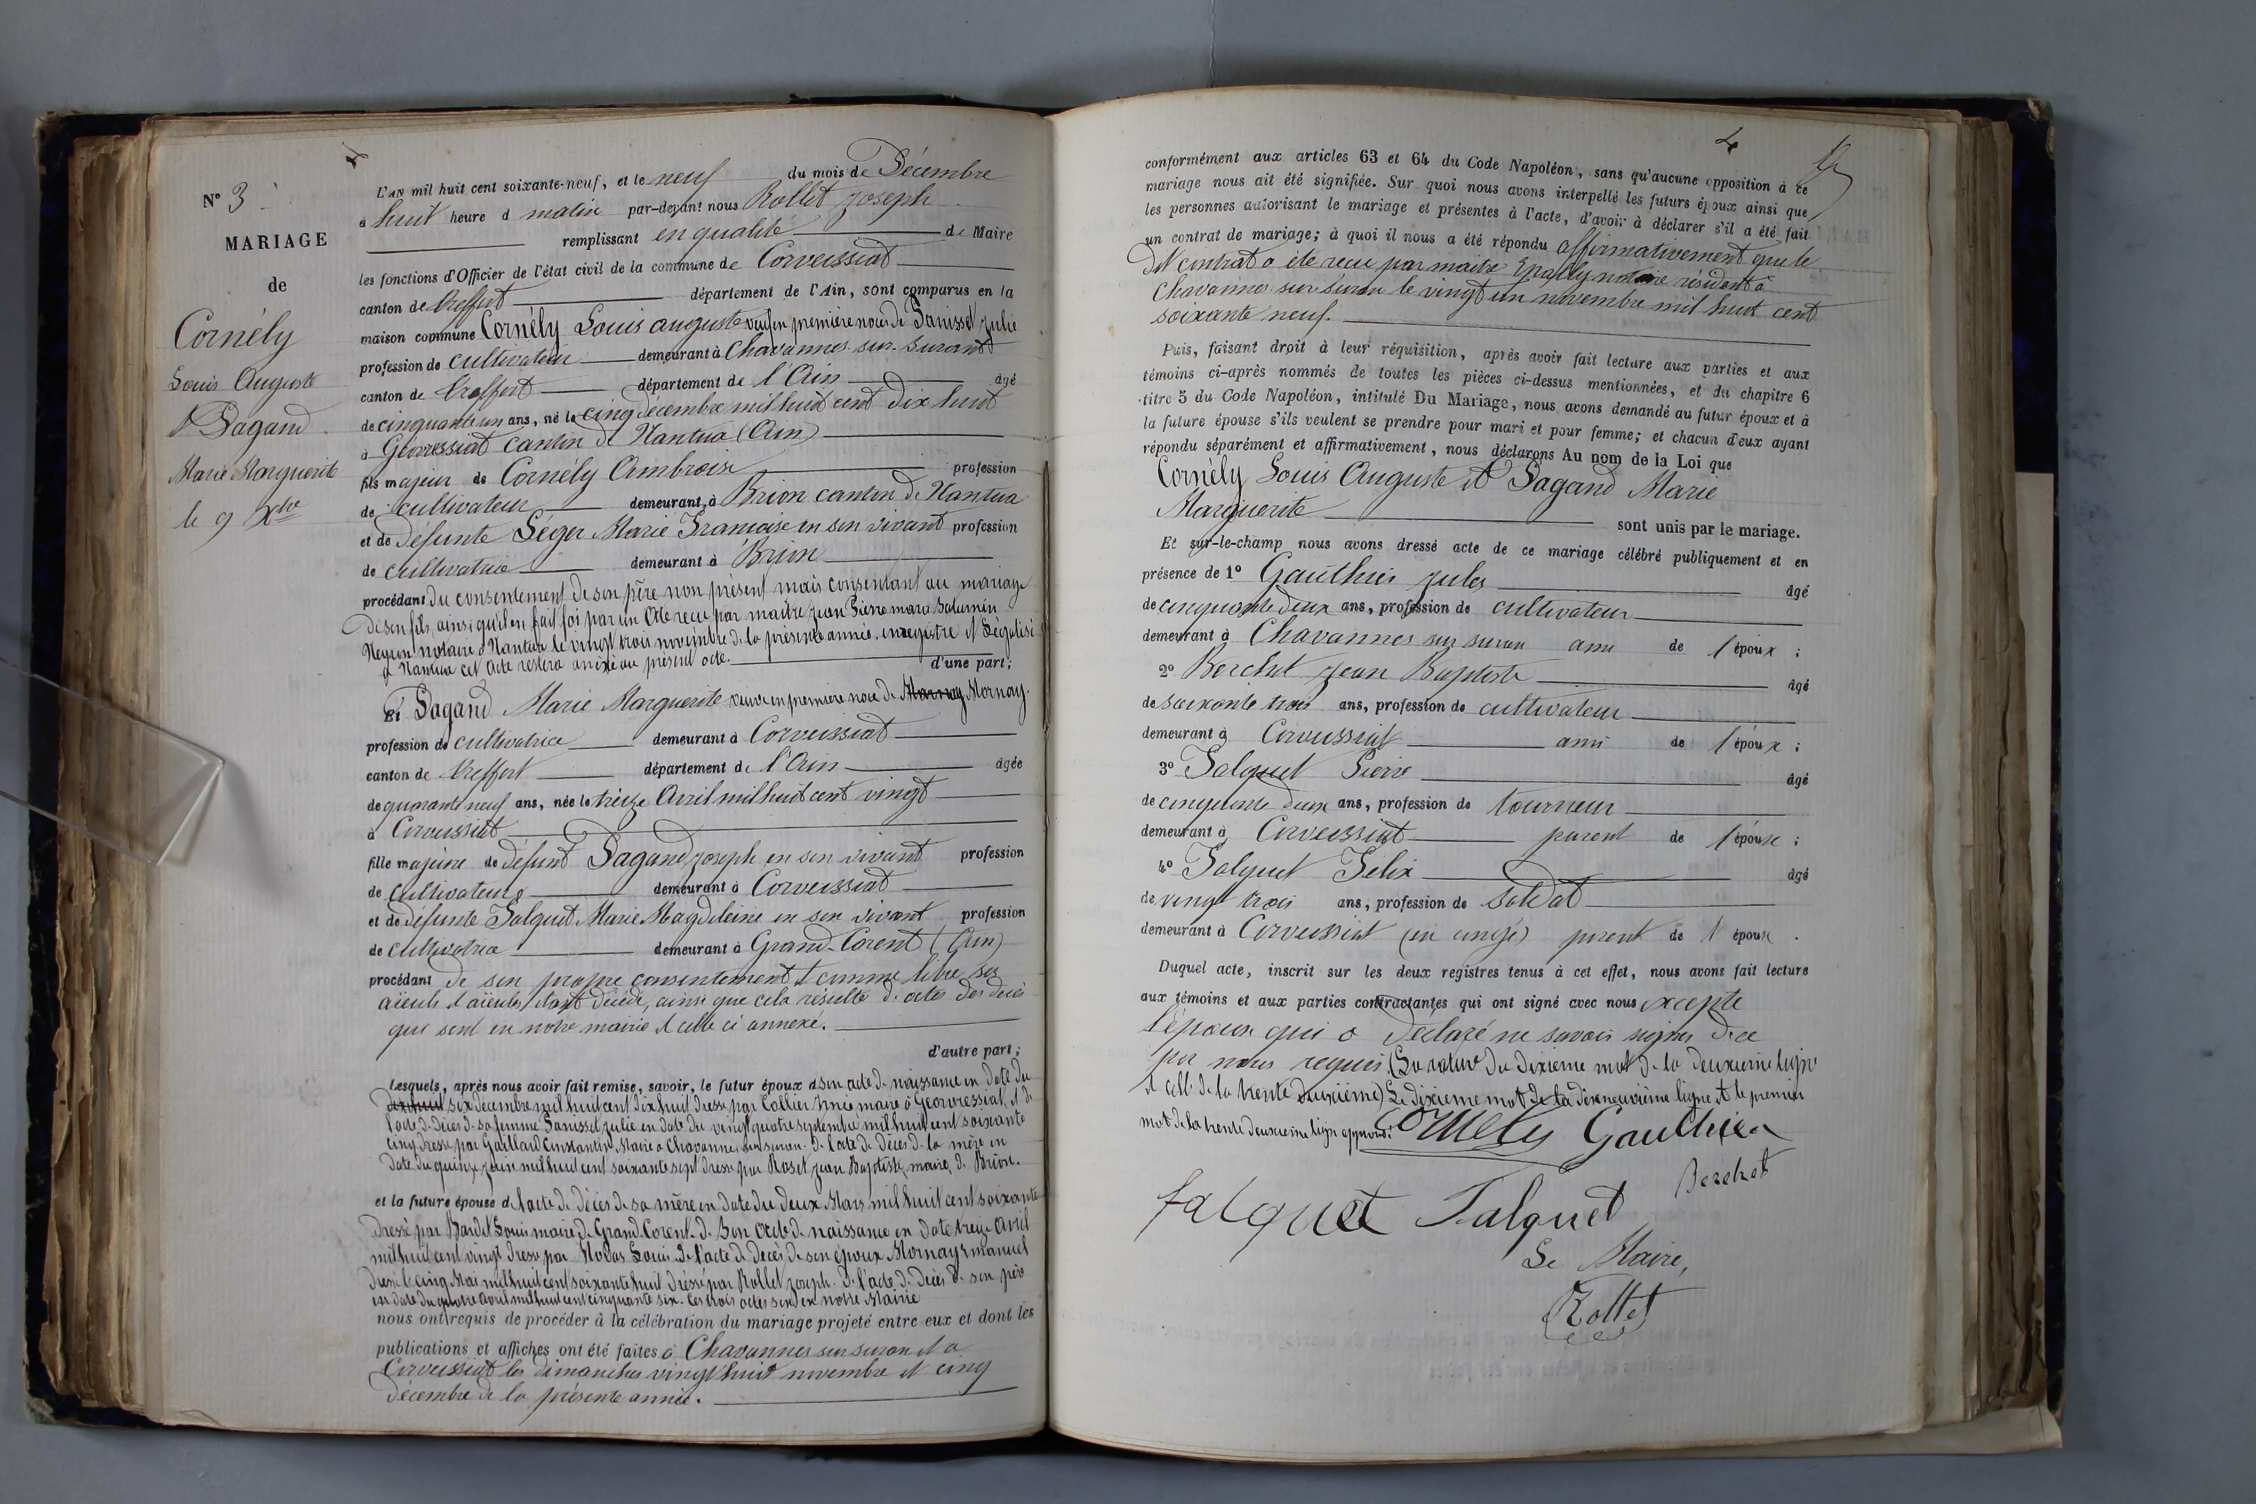 N° 3
MARIAGE
de
Cornély
Louis Auguste
& Pagand
Marie Marguerite
le 9 Xbre
L'AN mil huit cent soixante-neuf, et le neuf du mois de Décembre
à huit heure d matin par-devant nous Rollet Joseph
remplissant en qualité de Maire
les fonctions d'Officier de l'état civil de la commune de Corveissiat
canton de Treffort département de l'Ain, sont comparus en la
maison commune Cornély Louis auguste veuf en première noces de Janisset Julie
profession de cultivateur demeurant à Chavannes-sur-Surant
canton de Treffort département de l'Ain âgé
de cinquante un ans, né le cinq décembre mil huit cent dix huit
à Géovressiat canton de Nantua (Ain)
fils majeur de Cornély Ambroise profession
de cultivateur demeurant à Brion canton de Nantua
et de défunte Léger Marie Francoise en son vivant profession
de cultivatrice demeurant à Brion
procédant du consentement de son père non présent mais consentant au mariage
de son fils ainsi qu'il en fait foi par un Acte reçu par maitre Jean Pierre marie Saturnin
notaire à Nantua le vingt trois novembre de la présente année, enregistré et Légalisé
à Nantua cet Acte restera annexé au présent acte.
d'une part;
Et Pagand Marie Marguerite veuve en premiere noce de Mornay Mornay.
profession de cultivatrice demeurant à Corveissiat
canton de Treffort département de l'Ain âgée
de quarante neuf ans, née le treize Avril mil huit cent vingt
à Corveissiat
fille majeure de défunt Pagand Joseph en son vivant profession
de cultivateur demeurant à Corveissiat
et de défunte Falquet Marie Magdeleine en son vivant profession
de cultivatrice demeurant à Grand-Corent (Ain)
procédant de son propre consentement et comme libre ses
aïeuls et aïeules étant décédé, ainsi que cela résulte d. actes des décès
qui sont en notre mairie et celle ci annexé.
d'autre part;
Lesquels, après nous avoir fait remise, savoir, le futur époux d son acte de naissance en date du
dix huit six décembre mil huit cent dix huit dressé par Collier maire à Géovressiat, et de
l'acte de décès de sa femme Janisset Julie en date du vingt quatre septembre mil huit cent soixante
cinq dressé par Gaillard Constantin Maire à Chavannes sur suran. de l'acte de décès de la mère en
date du quinze juin mil huit cent soixante sept dressé par Roset Jean Baptiste, maire, de Brion.
et la future épouse d l'acte de décès de sa mère en date du deux Mars mil huit cent soixante
dressé par Bardet Louis maire de Grand Corent. de Son Acte de naissance en date treize Avril
mil huit cent vingt dressé par Louis. de l'acte de décès de son époux Mornay Emanuel
dressé le cinq Mai mil huit cent soixante huit dréssé par Rollet Joseph. de l'acte de décès de son père
en date du quatre avril mil huit cent cinquante six. Les trois actes sont en notre Mairie
nous ont requis de procéder à la célébration du mariage projeté entre eux et dont les
publications et affiches ont été faites à Chavannes sur suran et a
Corveissiat les dimanches vingt huit novembre et cinq
décembre de la présente année.
conformément aux articles 63 et 64 du Code Napoléon, sans qu'aucune opposition à ce
mariage nous ait été signifiée. Sur quoi nous avons interpellé les futurs époux ainsi que
les personnes autorisant le mariage et présentes à l'acte, d'avoir à déclarer s'il a été fait
un contrat de mariage; à quoi il nous a été répondu affirmativement que le
dit contrat a été reçu par maitre Epailly notaire résidant à
Chavannes sur Suran le vingt un novembre mil huit cent
soixante neuf.
Puis, faisant droit à leur réquisition, après avoir fait lecture aux parties et aux
témoins ci-après nommés de toutes les pièces ci-dessus mentionnées, et du chapitre 6
titre 5 du Code Napoléon, intitulé Du Mariage, nous avons demandé au futur époux et à
la future épouse s'ils veulent se prendre pour mari et pour femme; et chacun d'eux ayant
répondu séparément et affirmativement, nous déclarons Au nom de la Loi que
Cornély Louis Auguste et Pagand Marie
Marguerite sont unis par le mariage.
Et sur-le-champ nous avons dressé acte de ce mariage célébré publiquement et en
présence de 1° Gauthier Jules âgé
de cinquante deux ans, profession de cultivateur
demeurant à Chavannes sur suran ami de l'époux ;
2° Berchet Jean Baptiste âgé
de soixante trois ans, profession de cultivateur
demeurant à Corveissiat ami de l'époux ;
3° Falquet Pierre âgé
de cinquante deux ans, profession de tourneur
demeurant à Corveissiat parent de l'épouse ;
4° Falquet Félix âgé
de vingt trois ans, profession de soldat
demeurant à Corveissiat (en congé) parent de l'épouse .
Duquel acte, inscrit sur les deux registres tenus à cet effet, nous avons fait lecture
aux témoins et aux parties contractantes qui ont signé avec nous excepté
l'épouse qui a déclaré ne savoir signer de ce
par nous requis. (La rature du dixième mot de la deuxieme ligne
et celle de la trente deuxième) Le dixième mot de la dixneuvième ligne et le premier
mot de la trente deuxieme ligne approuvé.
Cornely Gauthier
Berchet
falquet Falquet
Le Maire,
Rollet